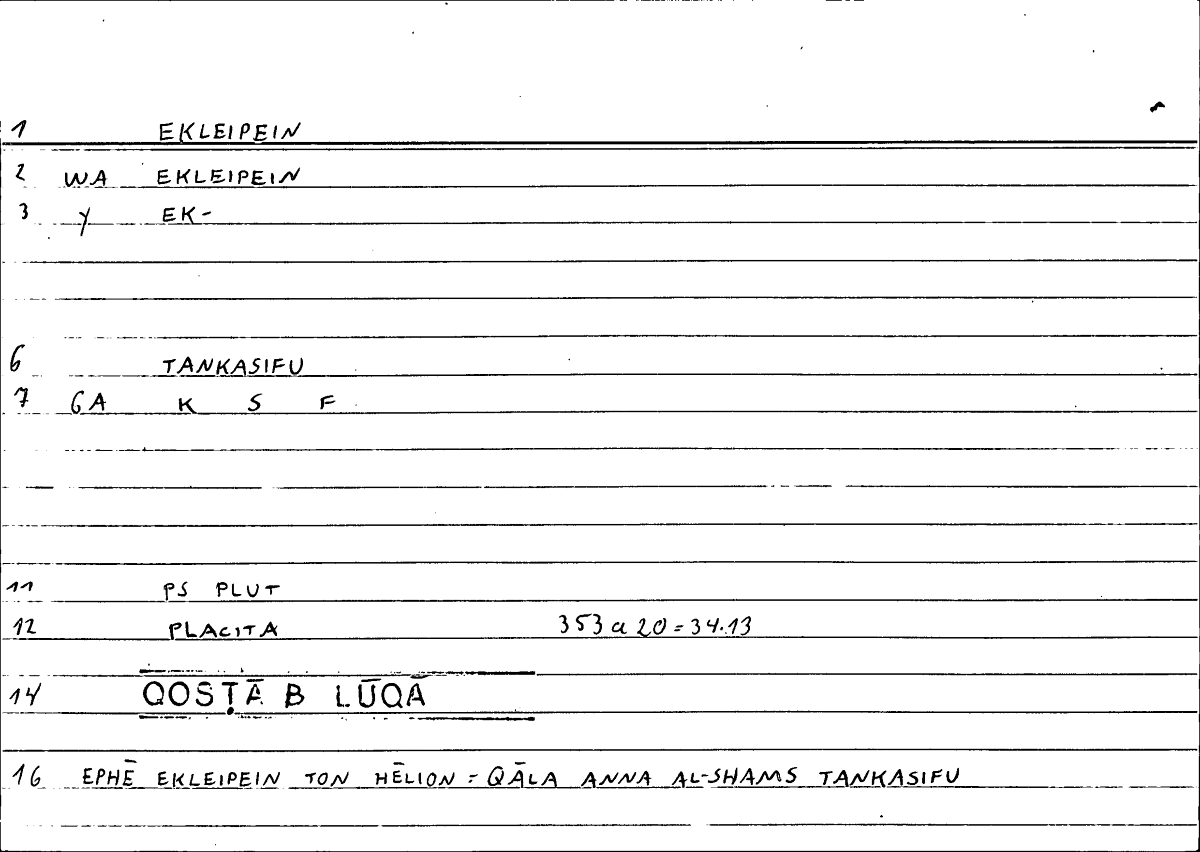 1 EKLEIPEIN
2 WA EKLEIPEIN
3 Y EK-
6 TANKASIFU
7 GA K S F
11 PS PLUT
12 PLACITA 353 a 20 = 34.13
14 QOSṬĀ B LŪQĀ
16 EPHĒ EKLEIPEIN TON HĒLION = QĀLA ANNA AL-SHAMS TANKASIFU